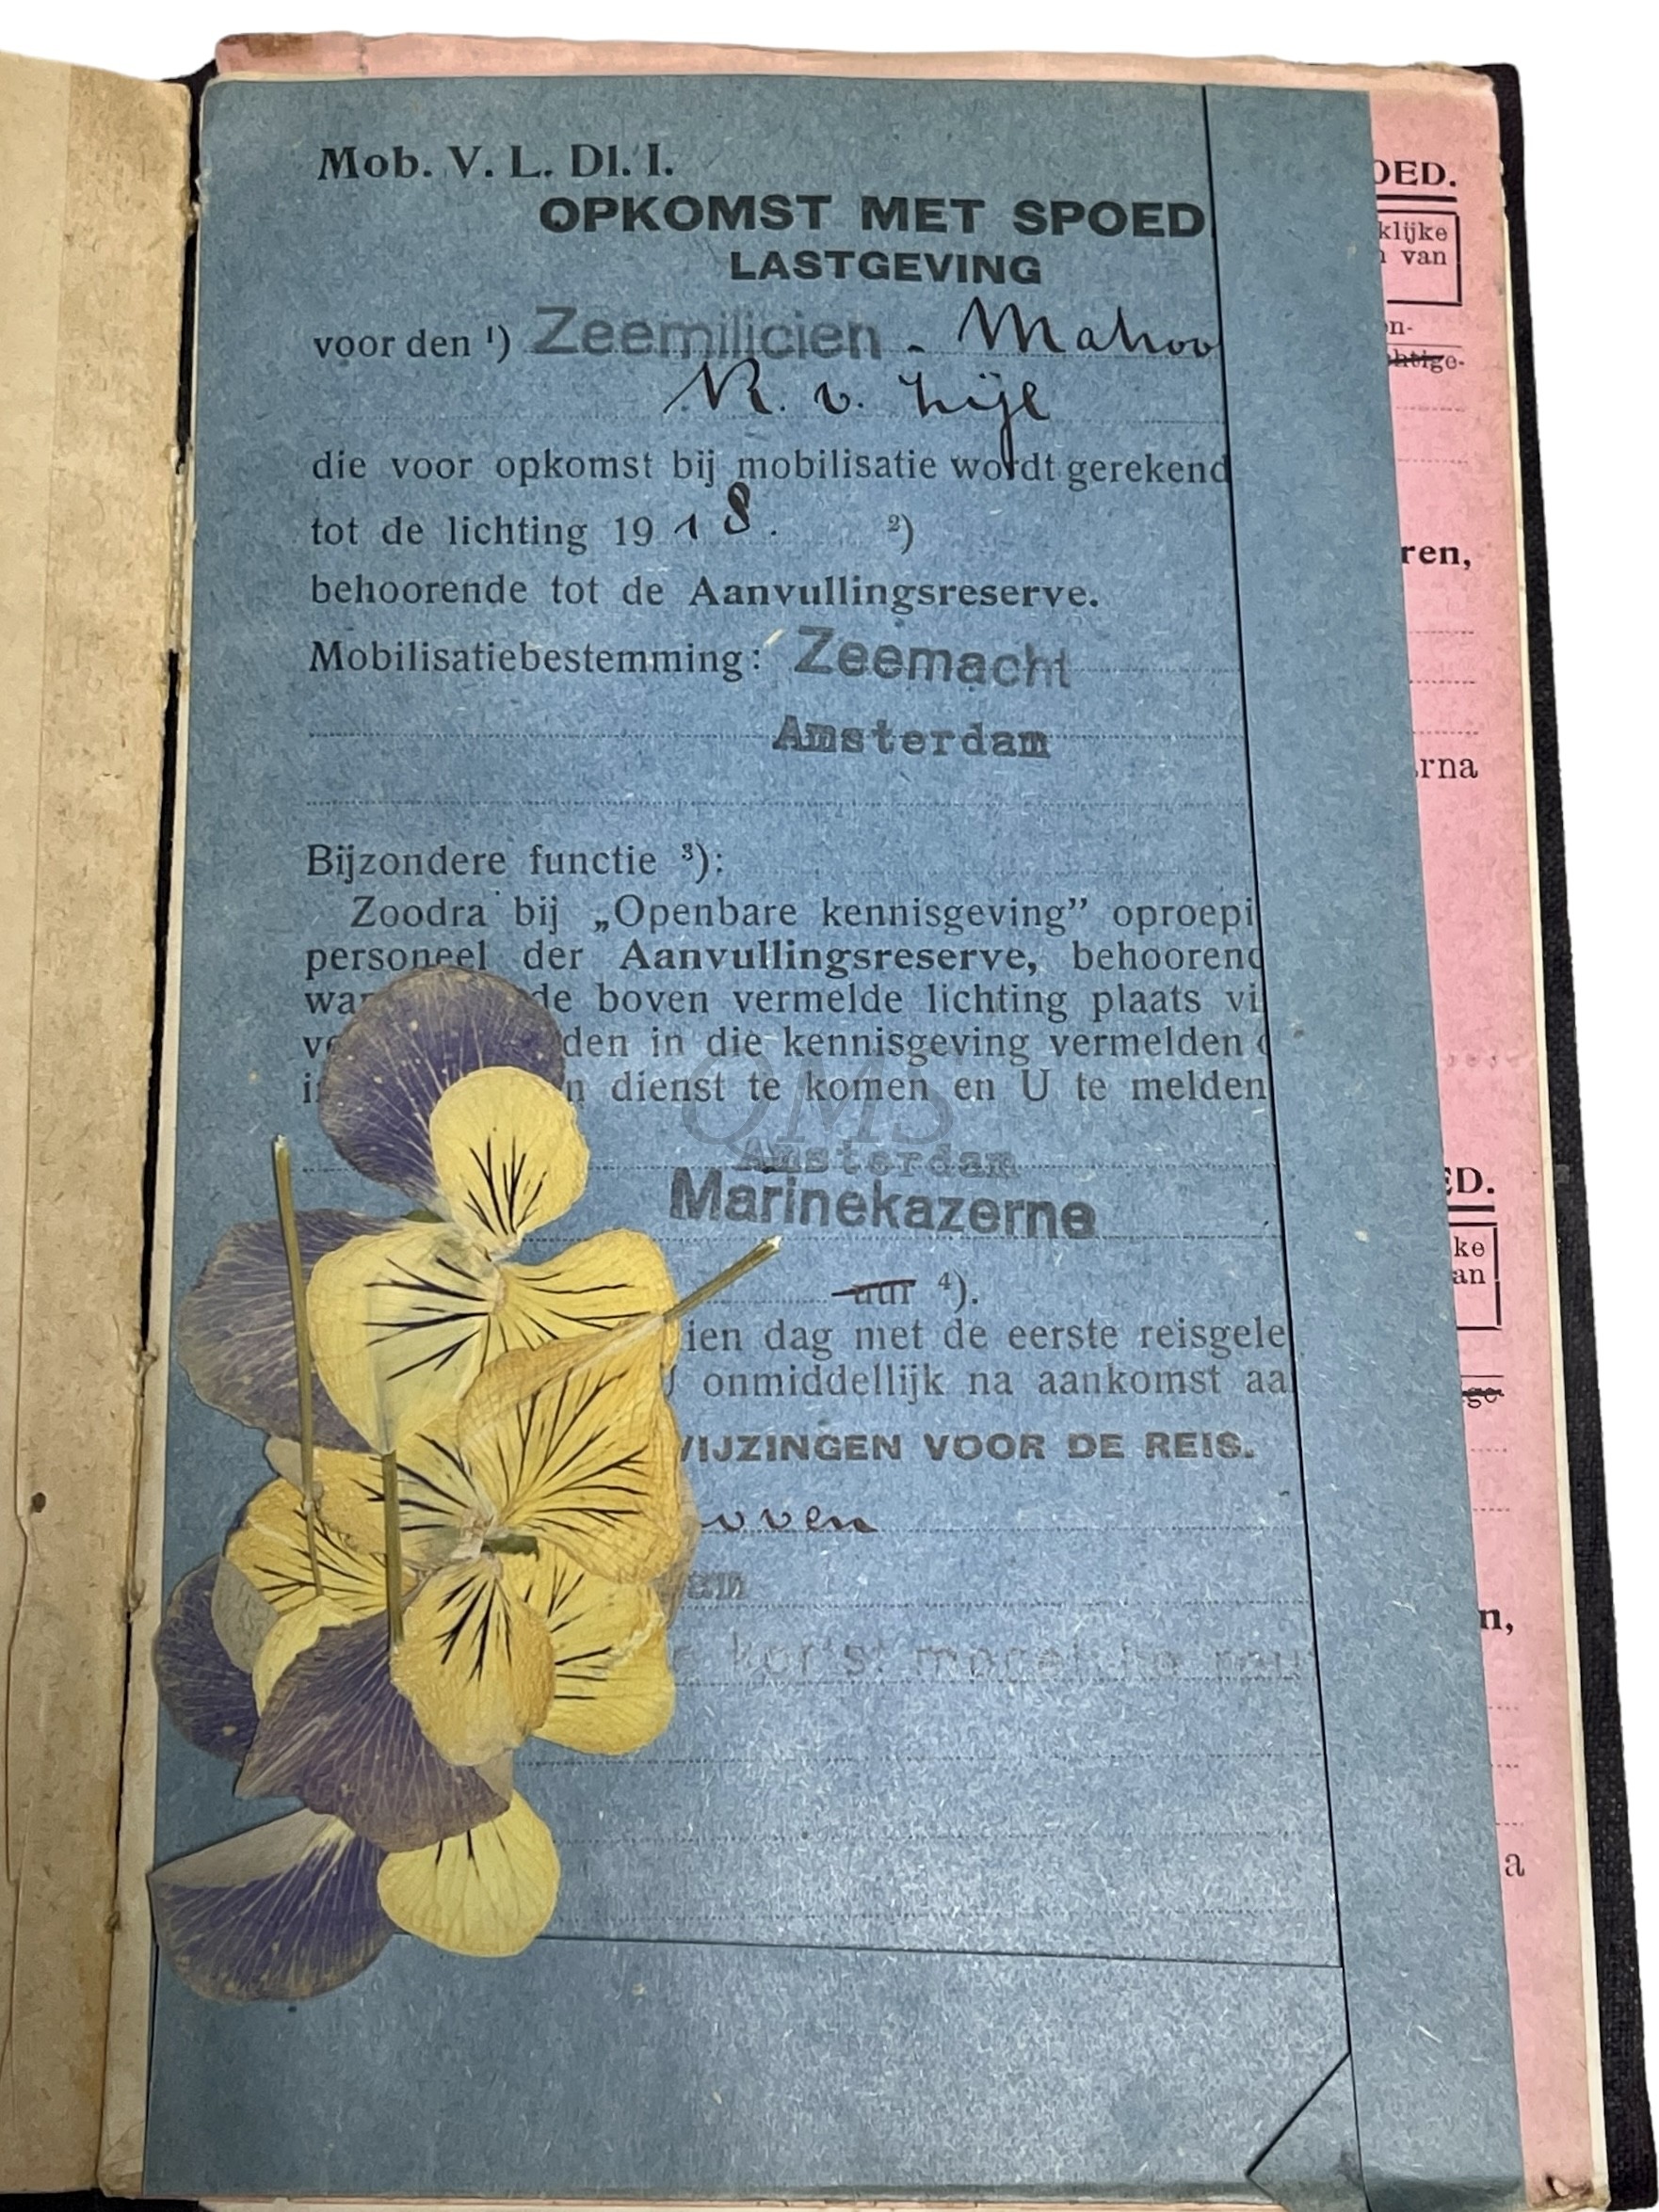 Mob. V. L. Dl. I.
OPKOMST MET SPOED
LASTGEVING
voor den ¹) Zeemilicien - Matroo
N. v. Zijl
die voor opkomst bij mobilisatie wordt gerekend
tot de lichting 1918. ²)
behoorende tot de Aanvullingsreserve.
Mobilisatiebestemming: Zeemacht
Amsterdam
Bijzondere functie ³):
Zoodra bij „Openbare kennisgeving” oproepi
personeel der Aanvullingsreserve, behoorend
wa de boven vermelde lichting plaats vi
ve den in die kennisgeving vermelden d
i n dienst te komen en U te melden
QMS
Amsterdam
Marinekazerne
uur ⁴).
ien dag met de eerste reisgele
onmiddellijk na aankomst aa
VIJZINGEN VOOR DE REIS.
oven
am
e kortst mogelijke rou
OED.
klijke
n van
on-
chtige-
ren,
rna
ED.
ke
an
ge-
n,
a